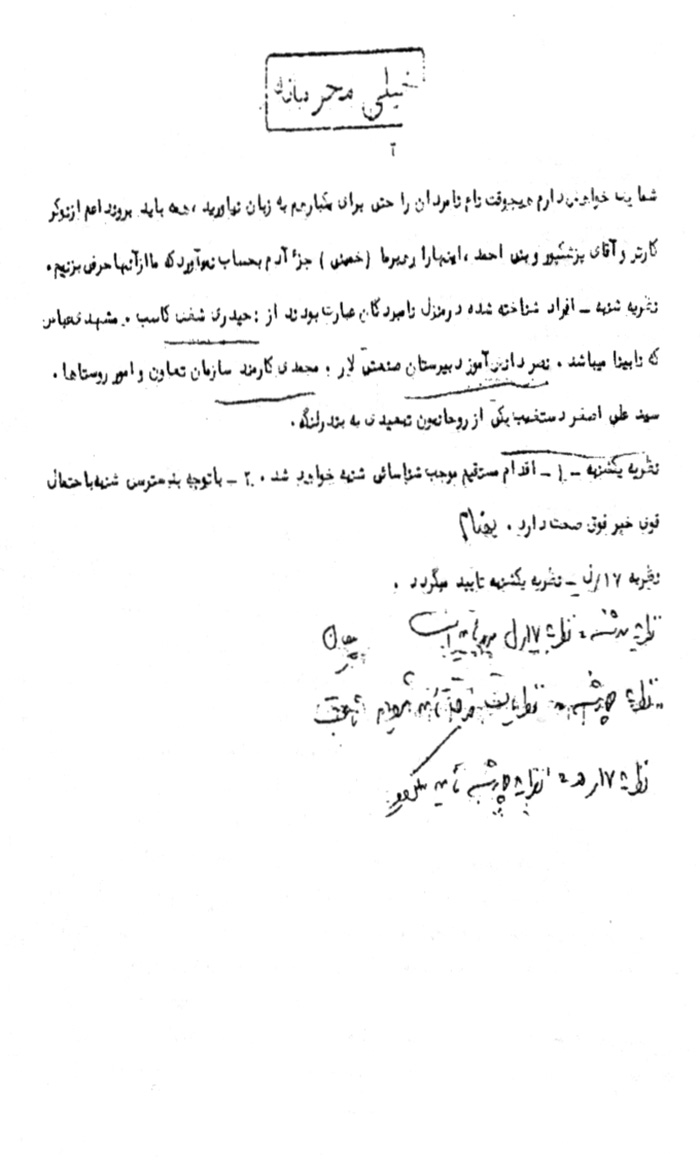 خیلی محرمانه
۲
شما یک خواهش دارم هیچوقت نام نامردان را حتی برای یکبارهم به زبان نیاورید ، همه باید بروند اعم از نوکر
کارتر و آقای پزشکپور و بنی احمد ، اینهارا رهبرما ( خمینی ) جزء آدم بحساب نمیآورد که ما از آنها حرفی بزنیم .
نظریه شنبه ــ افراد شناخته شده درمنزل نامبردگان عبارت بودند از : حیدری شغل کاسب . مشهدی عباس
که نابینا میباشد . نصر دانش آموز دبیرستان صنعتی لار ، محمدی کارمند سازمان تعاون و امور روستاها .
سید علی اصغر دستغیب یکی از روحانیون تبعیدی به بندرلنگه .
نظریه یکشنبه ــ ۱ ــ اقدام مستقیم موجب شناسائی شنبه خواهد شد . ۲ ــ باتوجه بدسترسی شنبه باحتمال
قوی خبر فوق صحت دارد .
نظریه ۱۷/ل ــ نظریه یکشنبه تایید میگردد .
نظریه سه‌شنبه : نظریه ۱۷/ل مورد تایید است
نظریه چهارشنبه :
نظریه ۱۷/ه : نظریه چهارشنبه تایید میگردد